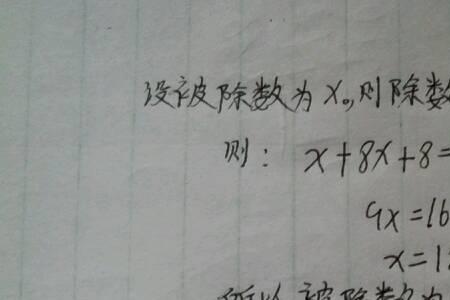 设被除数为x,则除数
则: x+8x+8=
9x=16
x=1
所以被除数为